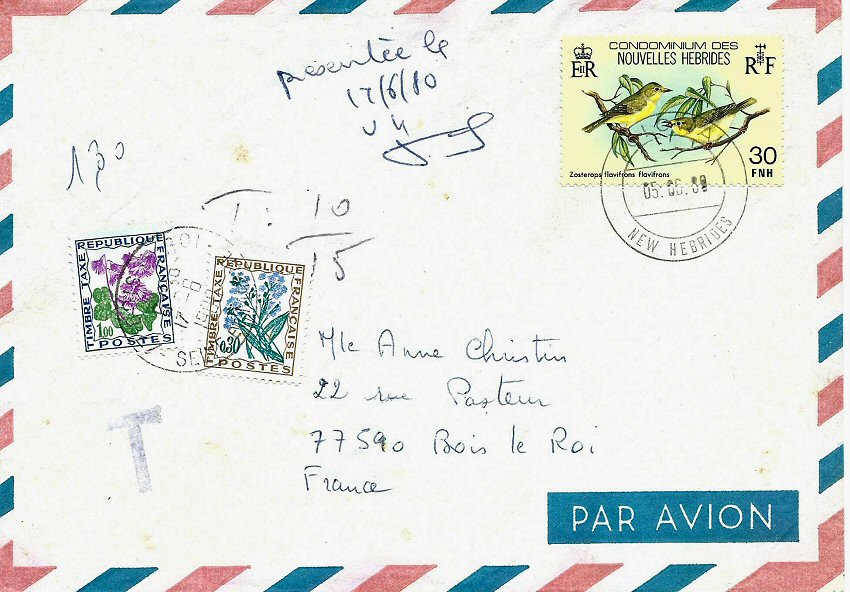 présentée le
17/6/80
CONDOMINIUM DES
NOUVELLES HEBRIDES
EIIR
RF
Zosterops flavifrons flavifrons
30
FNH
NEW HEBRIDES
130
T: 10
15
REPUBLIQUE FRANÇAISE
TIMBRE TAXE
1,00
POSTES
REPUBLIQUE FRANÇAISE
TIMBRE TAXE
0,30
POSTES
T
Mlle Anne Christin
22 rue Pasteur
77590 Bois le Roi
France
PAR AVION